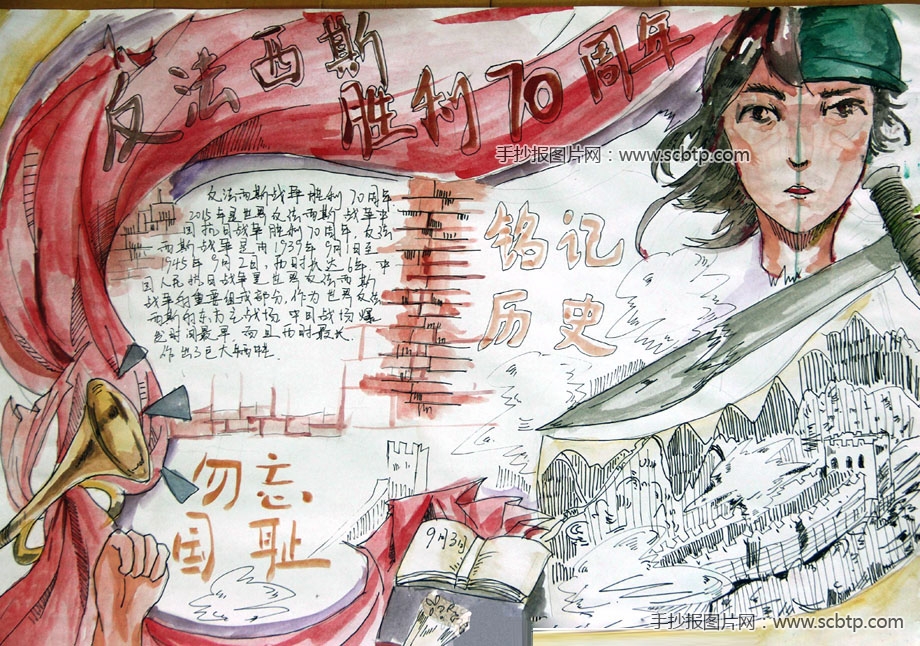 反法西斯
胜利70周年
手抄报图片网：www.scbtp.com
反法西斯战争胜利70周年
2015年是世界反法西斯战争中
国抗日战争胜利70周年,反法
西斯战争是由1939年9月1日至
1945年9月2日,历时长达6年,中
国人民抗日战争是世界反法西斯
战争的重要组成部分,作为世界反法
西斯的东方主战场,中国战场爆
发时间最早,而且历时最长
作出了巨大牺牲.
铭记
历史
勿忘
国耻
9月3日
手抄报图片网：www.scbtp.com